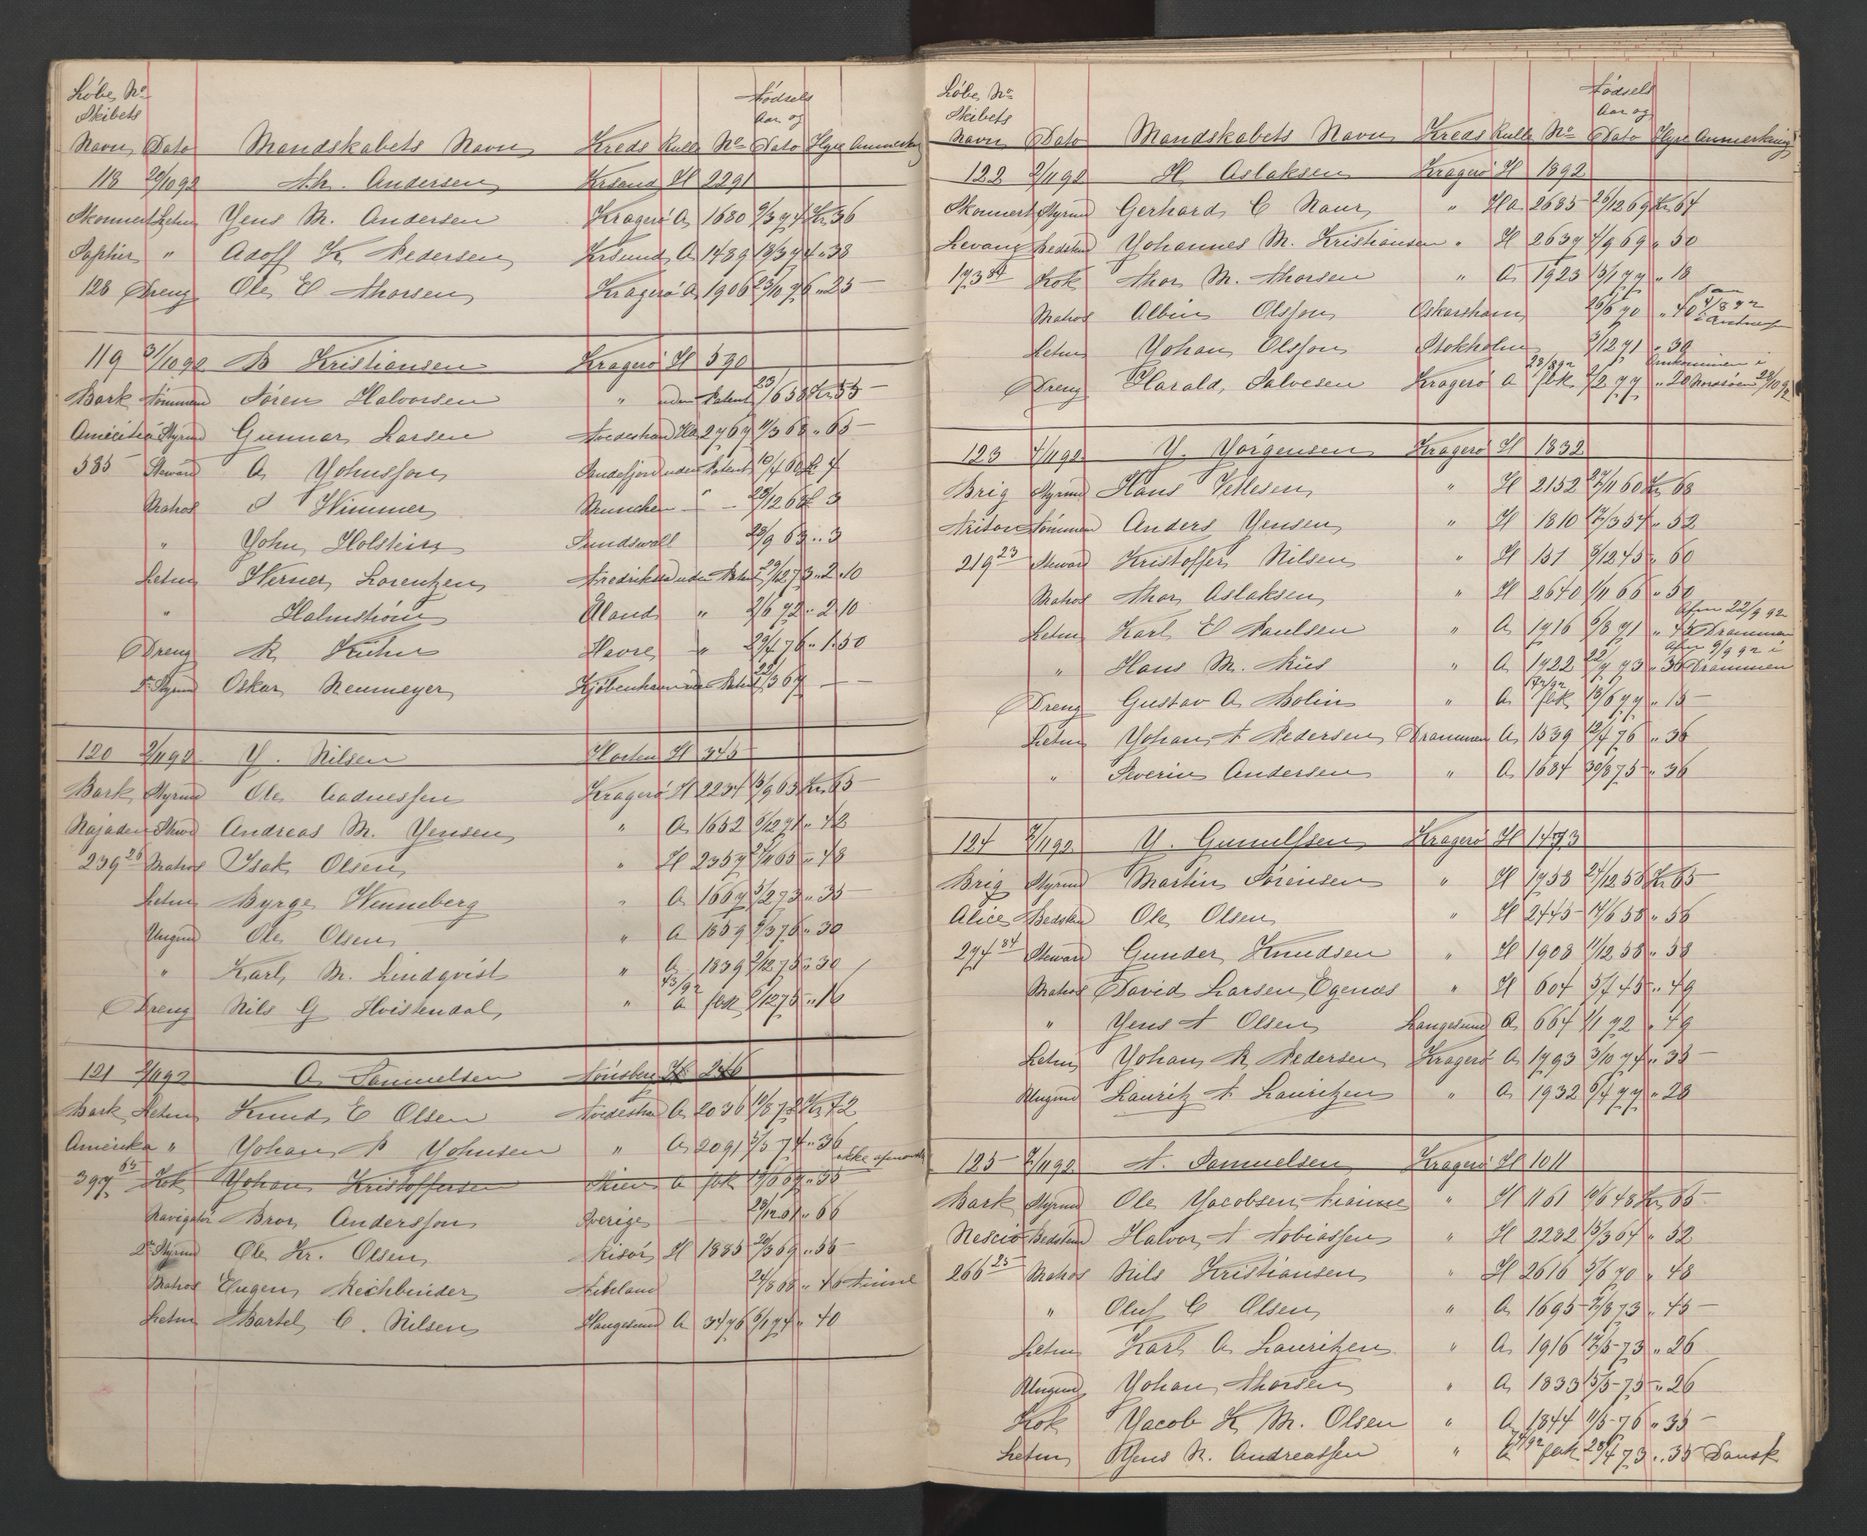 Løbe No
Skibets
Navn Dato Mandskabets Navn Kreds Rulle No Fødsels Aar og Dato Hyre Anmerkn
118 29/10 92 Th. Andersen Krsand H 2291
Skonnert Letm Jens M. Andersen Kragerø A 1680 9/3 74 Kr 36
Sophie " Adolf K Pedersen Krsund A 1489 18/3 74 " 38
128 Dreng Ole E Thorsen Kragerø A 1906 23/10 76 " 25
119 31/10 92 B Kristiansen Kragerø H 590
Bark Tømmermd Søren Halvorsen " uden Patent 23/1 65 Kr 55
Styrmd Gunnar Larsen Tvedestrand Ha 2767 11/3 68 " 65
585 Steward A Johnsson Sandefjord uden Patent 10/4 60 £ 4
Matros Himmer Munchen " 28/12 68 £ 3
" John Holstein Sundswall 23/9 63 " 3
Letm Werner Lorentzen Fredriksstad uden Patent 29/12 73 " 2.10
" Halmstrøm Øland " 2/6 72 " 2 10
Dreng R Kuhn Havre " 29/4 76 " 1.50
2n Styrmd Oskar Neumeyer Kjøbenhavn uden Patent 22/3 67
120 2/11 92 J. Nilsen Horten H 345
Bark Styrmd Ole Gadnessen Kragerø H 2234 13/9 63 Kr 65
Najaden Stewd Andreas M. Jensen " A 1652 6/12 71 " 42
239 26 Matros Isak Olsen " H 2357 21/11 65 " 48
Letm Byrge Henneberg " A 1667 5/2 73 " 35
Ungmd Ole Olsen " A 1859 9/3 76 " 30
" Karl M. Lindqvist " A 1839 2/12 75 " 30
Dreng Nils G Hvistendal " A 13/9 92 fbk 9/12 75 " 16
121 2/11 92 A Samuelsen Tønsberg H 246
Bark Letm Knud E Olsen Tvedestrand A 2036 10/8 72 Kr 42
Amerika " Johan P Johnsen " A 2091 5/5 74 " 36
397 63 Kok Johan Kristoffersen Skien A fbk 17/6 69 " 35 ikke afmønstr
Navigatør Bror Andersson Sverige 29/12 61 " 66
2n Styrmd Ole Kr. Olsen Risør H 1885 20/3 69 " 55
Matros Eugen Rechbinder 24/8 68 " 40
Letm Bartel C. Nilsen Haugesund A 3476 6/1 74 " 40
Løbe No
Skibets
Navn Dato Mandskabets Navn Kreds Rulle No Fødsels Aar og Dato Hyre Anmerkning
122 2/11 92 H Aslaksen Kragerø H 1892
Skonnert Styrmd Gerhard C Naur " Ha 2685 26/12 69 Kr 64
Levang Bedstmd Johannes M. Kristiansen " H 2637 4/9 69 " 50
173 84 Kok Thor M. Thorsen " A 1923 15/1 77 " 18
Matros Albin Olsson Oskarshamn 26/6 70 " 40 4/8 92 i Antwerp
Letm Johan Olsson Stokholm 3/12 71 " 30
Dreng Harald Salvesen Kragerø A 23/8 92 fbk 2/2 77 " 20 Omkommen i Nordsøen 22/10 92
123 4/11 92 J. Jørgensen Kragerø H 1832
Brig Styrmd Hans Vetlesen " H 2152 27/11 60 Kr 68
Triton Tømmermd Anders Jensen " H 1810 17/3 54 " 52
219 23 Steward Kristoffer Nilsen " H 151 8/12 45 " 60
Matros Thor Aslaksen " H 2640 1/11 66 " 50
Letm Karl E Paulsen " A 1716 6/8 71 " 45 Afm 22/9 92 Drammen
" Hans M. Riis " A 1722 22/7 73 " 36 Afm 9/9 92 i Drammen
Dreng Gustav A Bolin " A 17/2 92 fbk 18/6 77 " 15
Letm Johan A Pedersen Drammen A 1539 12/4 76 " 36
" Severin Andersen " A 1684 30/8 75 " 36
124 7/11 92 J. Gunulfsen Kragerø H 1473
Brig Styrmd Martin Sørensen " H 1753 24/12 56 Kr 65
Alice Bedstmd Ole Olsen " H 2445 14/6 58 " 56
274 84 Steward Gunder Knudsen " H 1908 11/12 58 " 58
Matros David Larsen Egenæs " H 604 5/4 45 " 49
" Jens A Olsen Langesund A 664 1/1 72 " 49
Letm Johan R Pedersen Kragerø A 1793 3/10 74 " 35
Ungmd Lauritz A Lauritzen " A 1932 6/4 77 " 28
125 7/11 92 A. Samuelsen Kragerø H 1011
Bark Styrmd Ole Jacobsen " H 1161 10/6 48 Kr 65
Nescio Bedstmd Halvor A Tobiassen " H 2232 15/3 64 " 52
266 25 Matros Nils Kristiansen " H 2616 5/6 70 " 48
" Oluf C Olsen " A 1695 7/8 73 " 45
Letm Karl A Lauritzen " A 1916 17/5 73 " 26
Ungmd Johan Thorsen " A 1833 15/5 75 " 26
Kok Jacob K M. Olsen " A 1844 11/5 76 " 35
Letm Jens N. Andreassen " A 7/92 fbk 28/4 73 " 35 Dansk